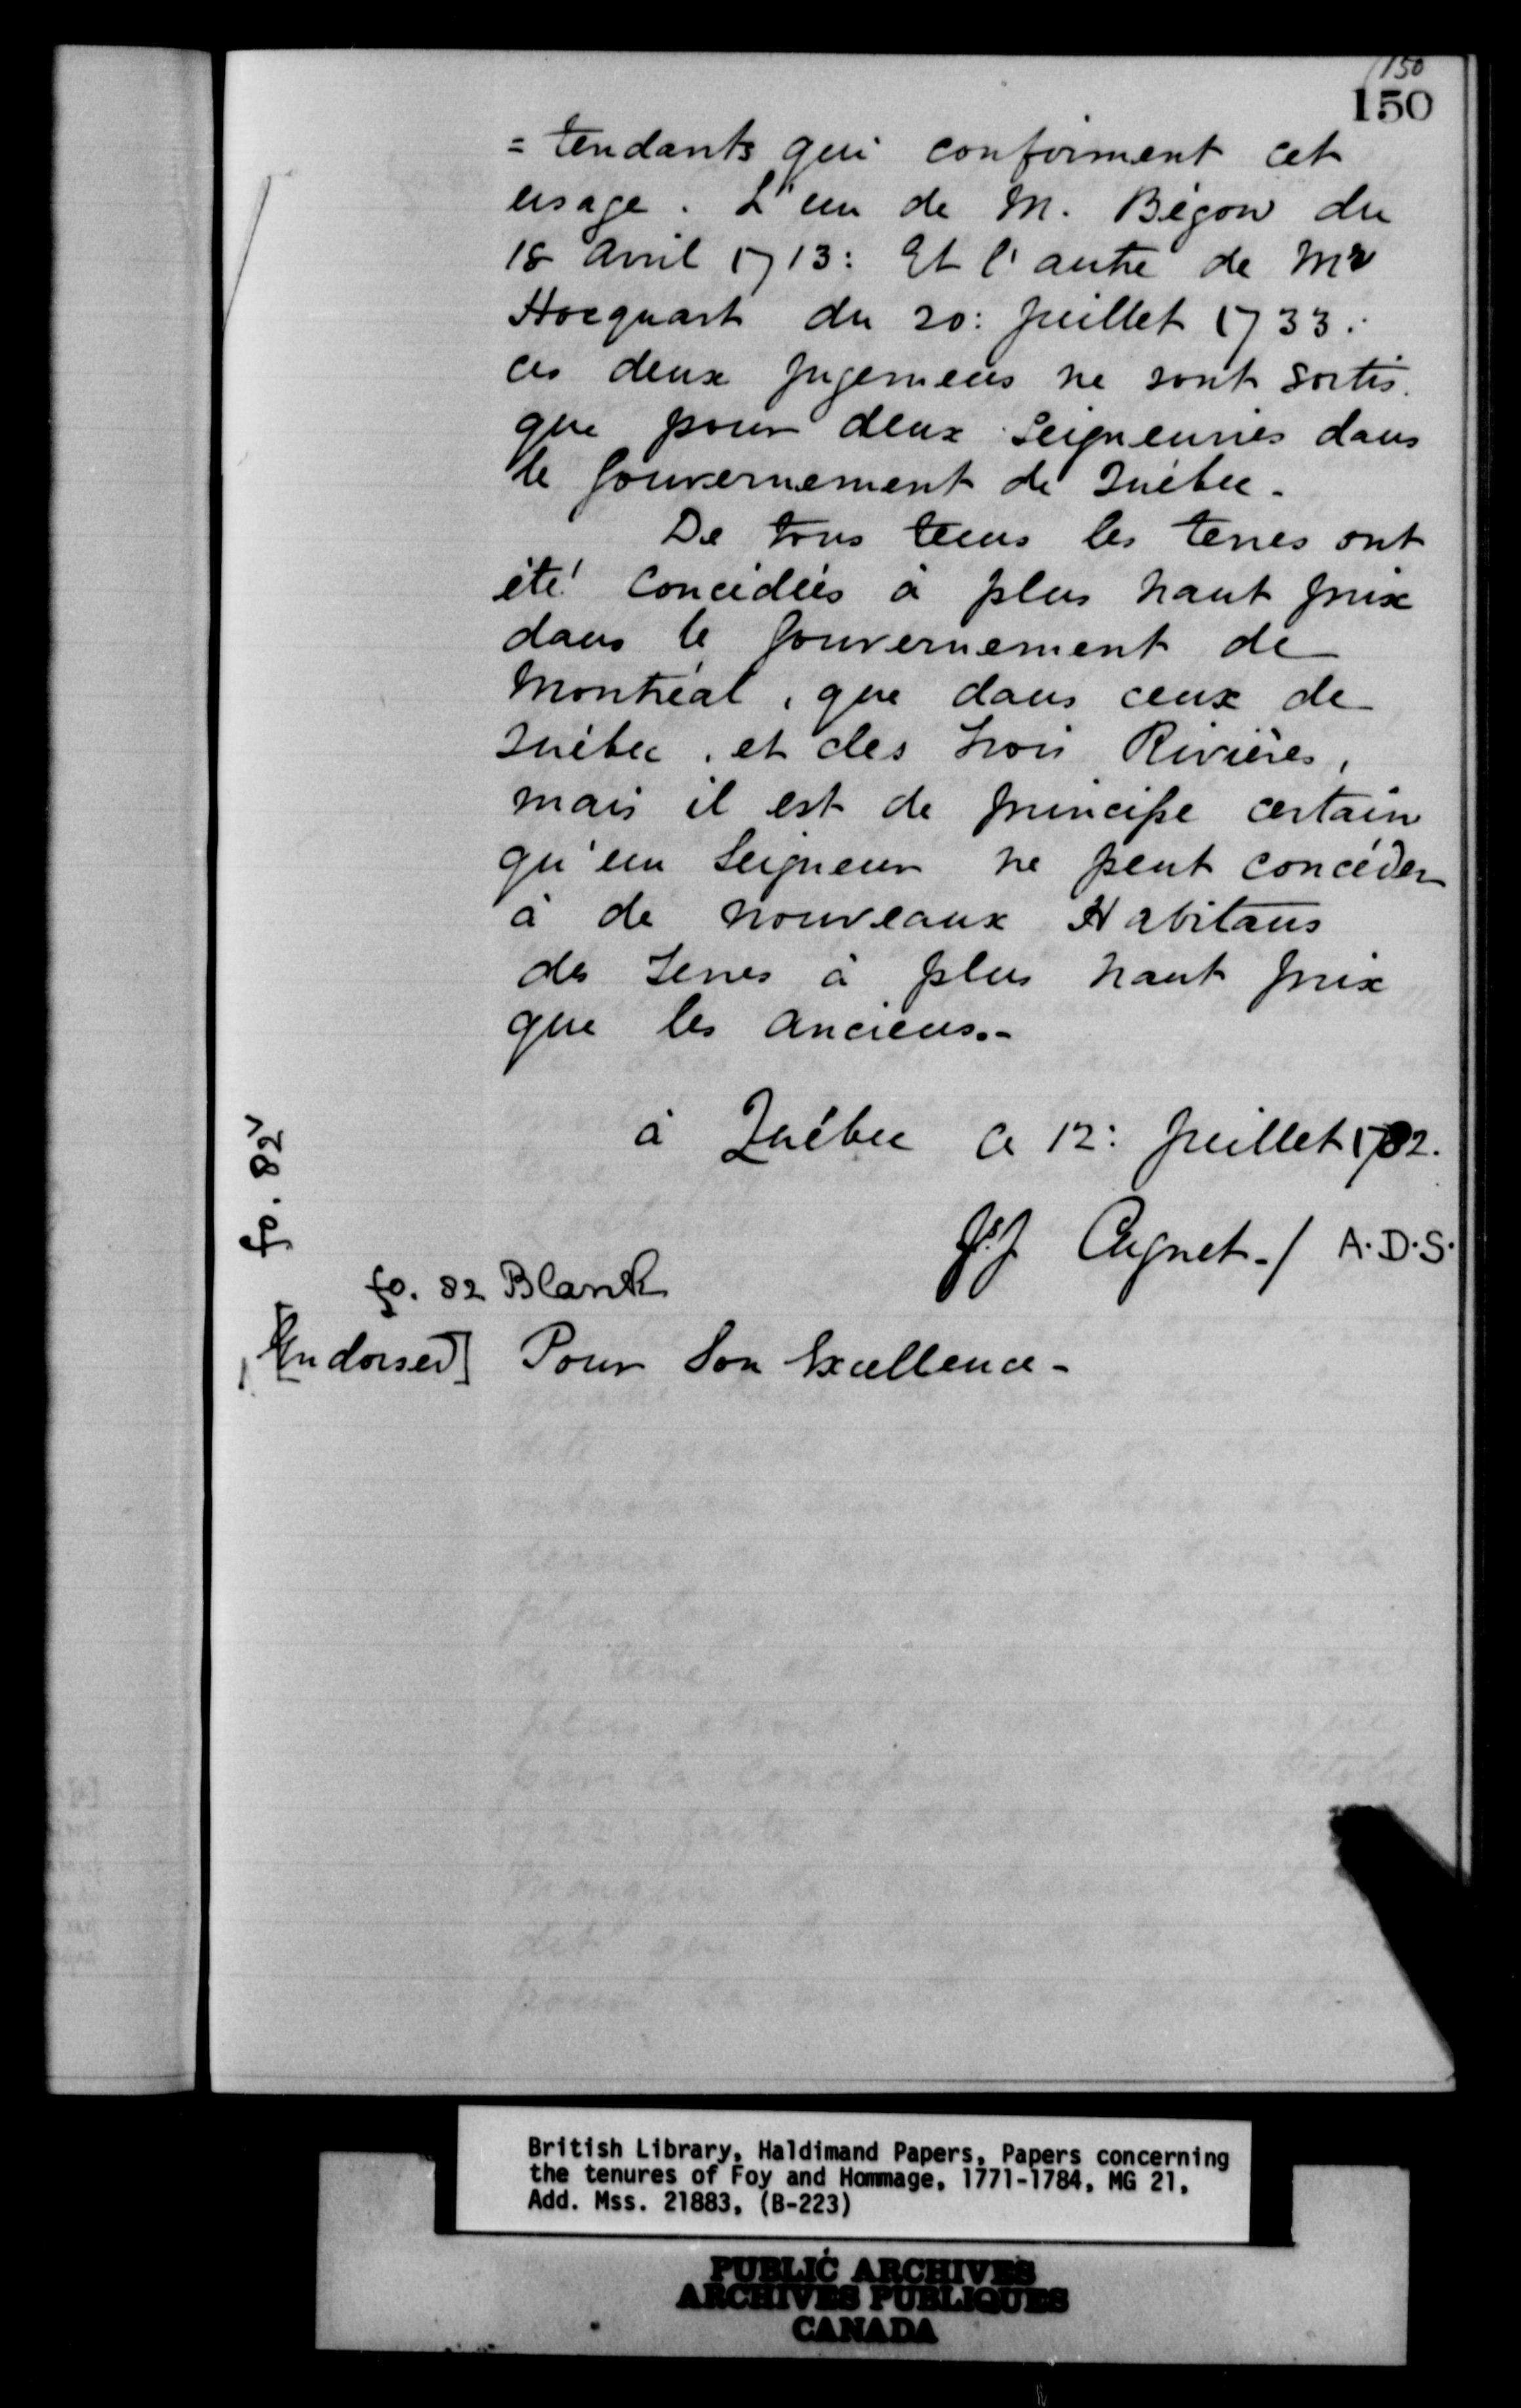 150
150
= tendants qui conforment cet
usage. L'un de M. Bégon du
18 avril 1713: Et l'autre de Mr
Hocquart du 20: juillet 1733.
ces deux jugemens ne sont sortis
que pour deux Seigneuries dans
le Gouvernement de Québec.
De tous tems les terres ont
été concédées à plus haut prix
dans le Gouvernement de
Montréal, que dans ceux de
Québec, et des trois Rivières,
mais il est de principe certain
qu'un Seigneur ne peut concéder
à de nouveaux Habitans
des terres à plus haut prix
que les anciens.-
à Québec ce 12: juillet 1782.
fo. 82v
Fs. J Cugnet-/ A.D.S.
fo. 82 Blank
[Endorsed] Pour Son Excellence-
British Library, Haldimand Papers, Papers concerning
the tenures of Foy and Hommage, 1771-1784, MG 21,
Add. Mss. 21883, (B-223)
PUBLIC ARCHIVES
ARCHIVES PUBLIQUES
CANADA